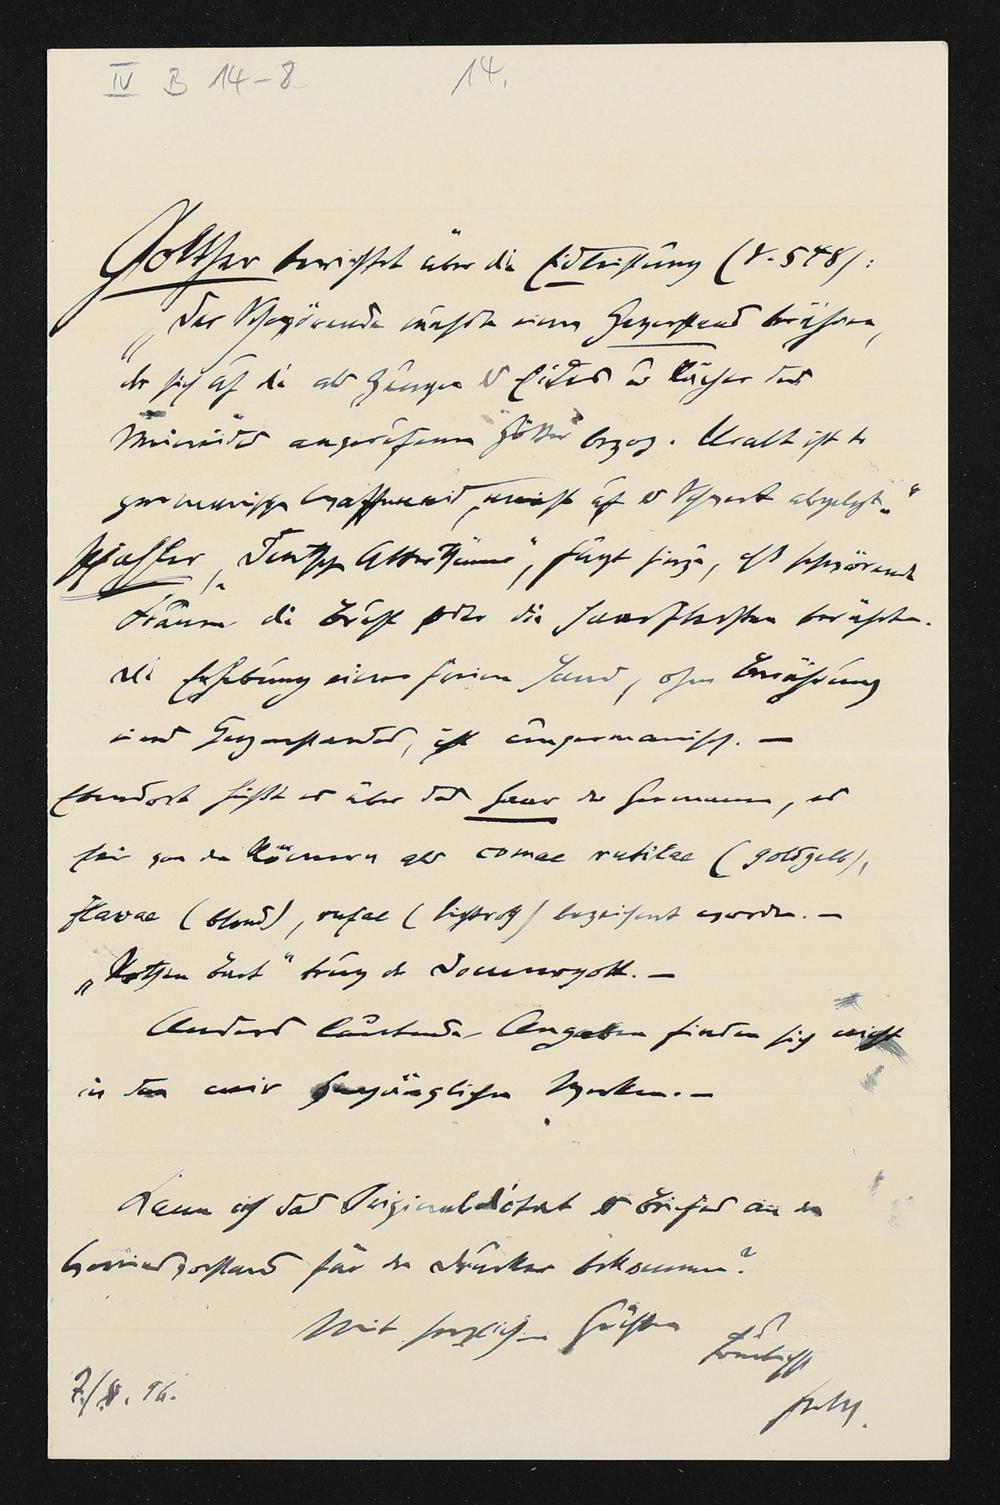 IV B 14-8 14.
Golther berichtet über die Eidleistung (S. 548):
„Der Schwörende mußte einen Gegenstand berühren,
der sich auf die als Zeugen d Eides u Rächer des
Meineides angerufenen Götter bezog. Uralt ist die
germanische Eid, auf d Schwert abgelegt.“
„Deutsche Altertümer“, fügt hinzu, daß schwörende
Frauen die Brust oder die Haarflechten berührten.
Die Erhebung einer freien Hand, ohne Berührung
eines Gegenstandes, ist ungermanisch. —
Ebendort heißt es über das Haar der Germanen, es
sei von den Römern als comae rutilae (goldgelb),
flavae (blond), rufae (lichtrot) bezeichnet worden. —
„Rothen Bart“ trug der Donnergott. —
Anders lautende Angaben finden sich nicht
in den mir zugänglichen Werken. —
Kann ich das Original d Briefes an den
Gemeindevorstand für den Drucker bekommen?
Mit herzlichen Grüßen
7./ . 96.